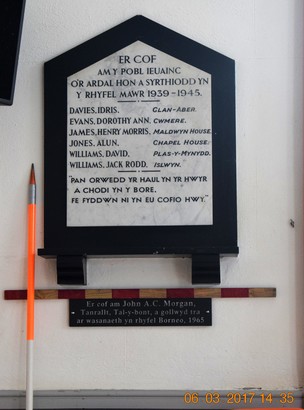 ER COF
AM Y POBL IEUAINC
O'R ARDAL HON A SYRTHIODD YN
Y RHYFEL MAWR 1939-1945.
DAVIES, IDRIS. GLAN-ABER.
EVANS, DOROTHY ANN, CWMERE.
JAMES, HENRY MORRIS, MALDWYN HOUSE.
JONES, ALUN. CHAPEL HOUSE.
WILLIAMS, DAVID. PLAS-Y-MYNYDD.
WILLIAMS, JACK RODD. ISLWYN.
"PAN ORWEDD YR HAUL YN YR HWYR
A CHODI YN Y BORE,
FE FYDDWN NI YN EU COFIO HWY."
Er cof am John A.C. Morgan,
Tanrallt, Tal-y-bont, a gollwyd tra
ar wasanaeth yn rhyfel Borneo, 1965
06 03 2017 14 35